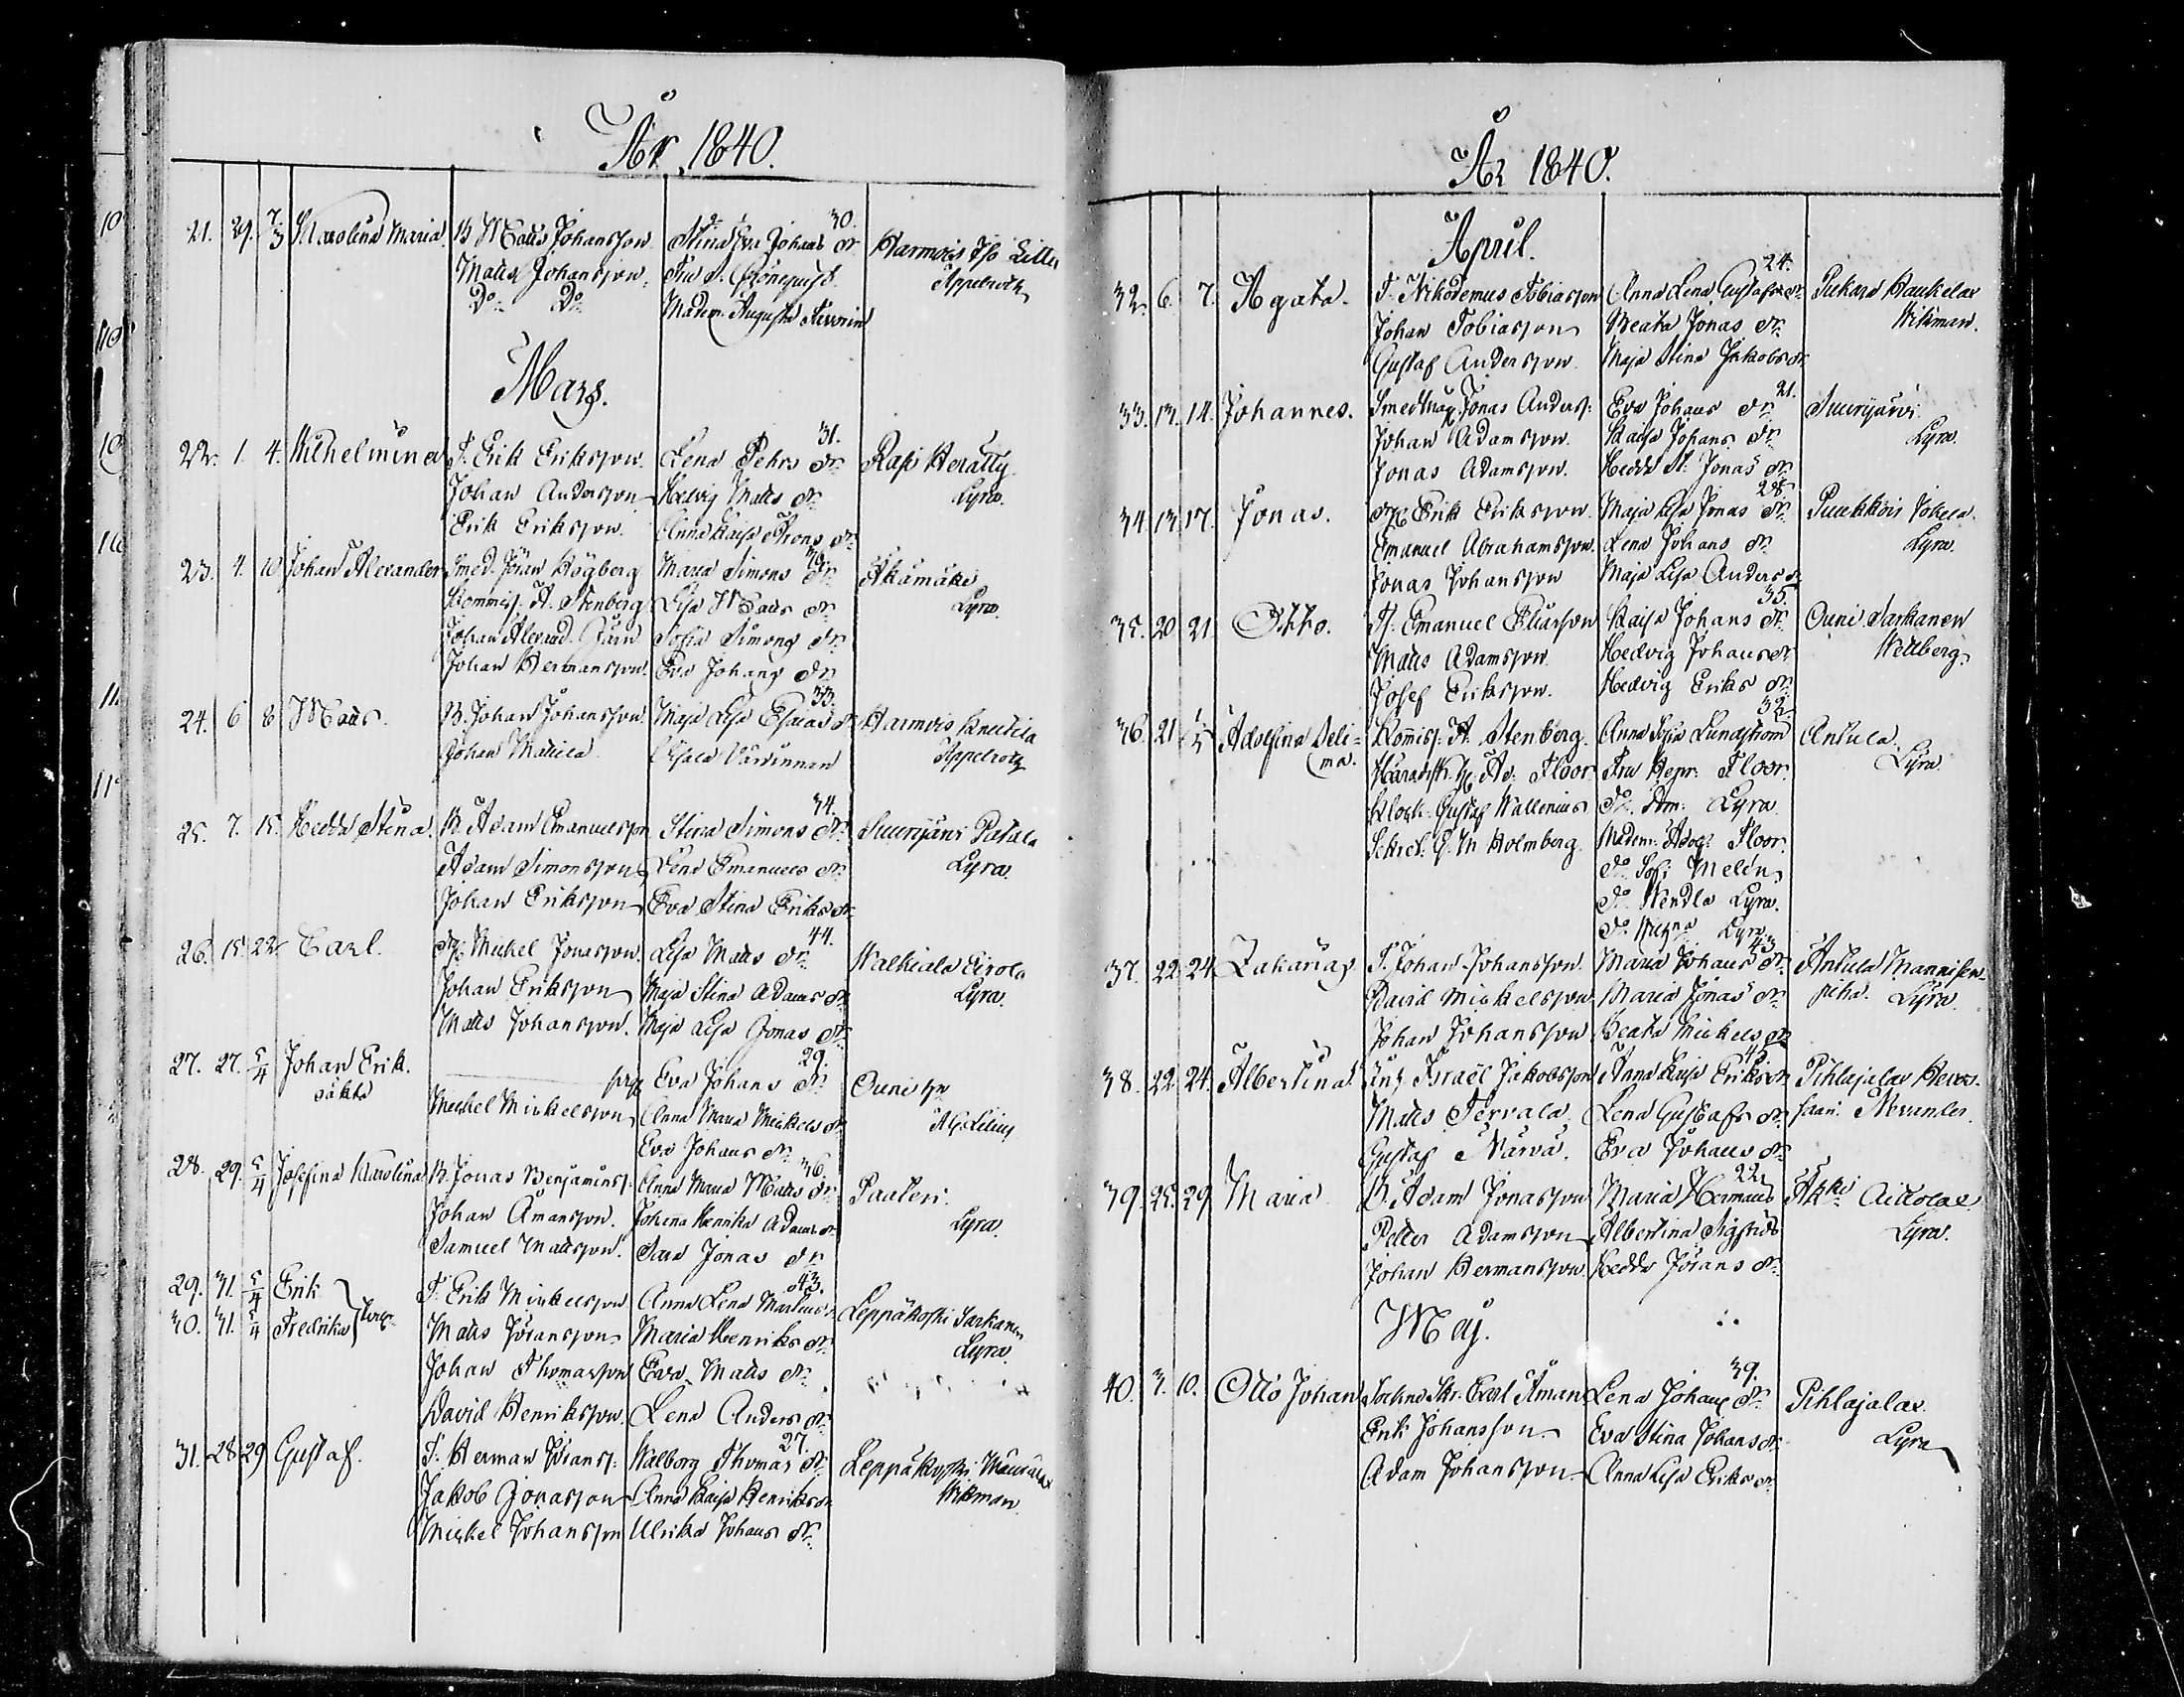 År 1840.
21. 29. 7/3 Karolina Maria. B. Matts Johansson. Stina Eva Johans dr. 30. Harmois Iso Lilla
Matts Johansson. Fru S. Grönqvist. Appelroth
Do. Do. Madem. Augusta
Mars.
22. 1. 4. Wilhelmina T. Erik Eriksson. Lena Pehrs dr. 31. Rapi Heratty
Johan Andersson Hedvig Matts dr. Lyra.
Erik Eriksson. Anna Kaisa Thoms dr.
23. 4. 10 Johan Alexander Smed. Jöran Högberg Maria Simons dr. Äkämäki
Kommiss. A. Stenberg Lisa Matts dr. Lyra.
Johan Alexand. Sofia Simons dr.
Johan Hermansson. Eva Johans dr.
24. 6 8 Matts. B. Johan Johansson. Maja Lisa Esaias dr. 33. Harmois Knutila
Johan Mattila Esaia Värdinnan Appelroth
25. 7. 15. Hedda Stina. B. Adam Emanuelsson Stina Simons dr. 34. Suurijärvi Patala
Adam Simonsson Lena Emanuels dr. Lyra.
Johan Eriksson Eva Stina Eriks dr.
26. 15. 22 Carl. Michel Jonasson. Lisa Matts dr. 44. Walkiala Eirola
Johan Eriksson Maja Stina Adams dr. Lyra.
Matts Johansson. Maja Lisa Jonas dr.
27. 27. 5/4 Johan Erik. Eva Johans dr. 29. Ouni
oäkta Michel Mickelsson Anna Maria Mickels dr. Lilius
Eva Johans dr.
28. 29. 5/4 Josefina Karolina B. Jonas Benjaminss: Anna Maria Matts dr. 36. Paateri.
Johan Åmansson. Johanna Henrika Adams dr. Lyra.
Samuel Mattsson. Sara Jonas dr.
29. 31. 5/4 Erik T. Erik Mickelsson Anna Lena Martins dr. 43. Leppäkoski Sarkanen
30. 31. 5/4 Fredrika Matts Jöransson Maria Henriks dr. Lyra.
Johan Thomasson Eva Matts dr.
David Henriksson. Lena Anders dr.
31. 28 29 Gustaf. T. Herman Jöranss: Walborg Thomas dr. 27. Leppäkoski
Jakob Jonasson Anna Kaisa Henriks dr. Wikman
Mickel Johansson Ulrika Johans dr.
År 1840.
April.
32. 6. 7. Agata. T. Nikodemus Tobiasson Anna Lena Gustafs dr. 24. Pukara Haukelar
Johan Tobiasson Beata Jonas dr. Wikman.
Gustaf Andersson. Maja Stina Jakobs dr.
33. 13. 14. Johannes. Smedmäg. Jonas Anderss: Eva Johans dr. 21. Suurijärvi
Johan Adamsson. Kaisa Johans dr. Lyra.
Jonas Adamsson. Hedda St. Jonas dr.
34 13. 17. Jonas. Erik Eriksson. Maja Lisa Jonas dr. 28. Puukkois Jokela.
Emanuel Abrahamsson. Lena Johans dr. Lyra.
Jonas Johansson Maja Lisa Anders dr.
35. 20 21 Otto. Emanuel Eliasson Kaisa Johans dr. 35. Ouni Sarkanen
Matts Adamsson. Hedvig Johans dr. Wellberg.
Josef Eriksson. Hedvig Eriks dr.
36. 21 1/5 Adolfina Seli- Kommiss: A. Stenberg. Anna Sofia Lundstrom 32. Anlula.
ma. Häradsh. Ad: Floor Fru Hepr: Floor. Lyra.
Klock. Gustaf Wallenius Do. Am: Lyra.
Sekret: G. W. Holmberg. Madem: Adog: Floor.
Do. Sofi Melén
Do. Wendla Lyra.
Do. Lyra.
37. 22 24 Zakarias T. Johan Johansson. Maria Johans dr. 43. Anlula Mannisen-
David Mickelsson Maria Jonas dr. piha. Lyra.
Johan Johansson Beata Mickels dr.
38. 22. 24. Albertina. Inh. Israël Jakobsson Anna Kaisa Eriks dr. 45. Pihlajalax Hevos-
Matts Tervala. Lena Gustafs dr. saari. Nevander.
Gustaf Närvä. Eva Johans dr.
39. 25. 29 Maria B. Adam Jonasson Maria Hermans 22. Äkki Aittolax
Petter Adamsson Albertina Sigfrids Lyra.
Johan Hermansson. Hedda Jörans dr.
Maj.
40. 3. 10. Otto Johan Sockne Skr. Carl Åman Lena Johans dr. 39. Pihlajalax.
Erik Johansson. Eva Stina Johans dr. Lyra
Adam Johansson. Anna Lisa Eriks dr.